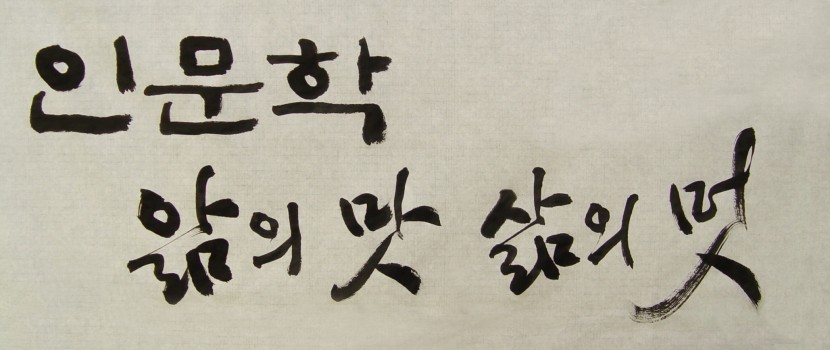 인문학
앎의 맛 삶의 멋